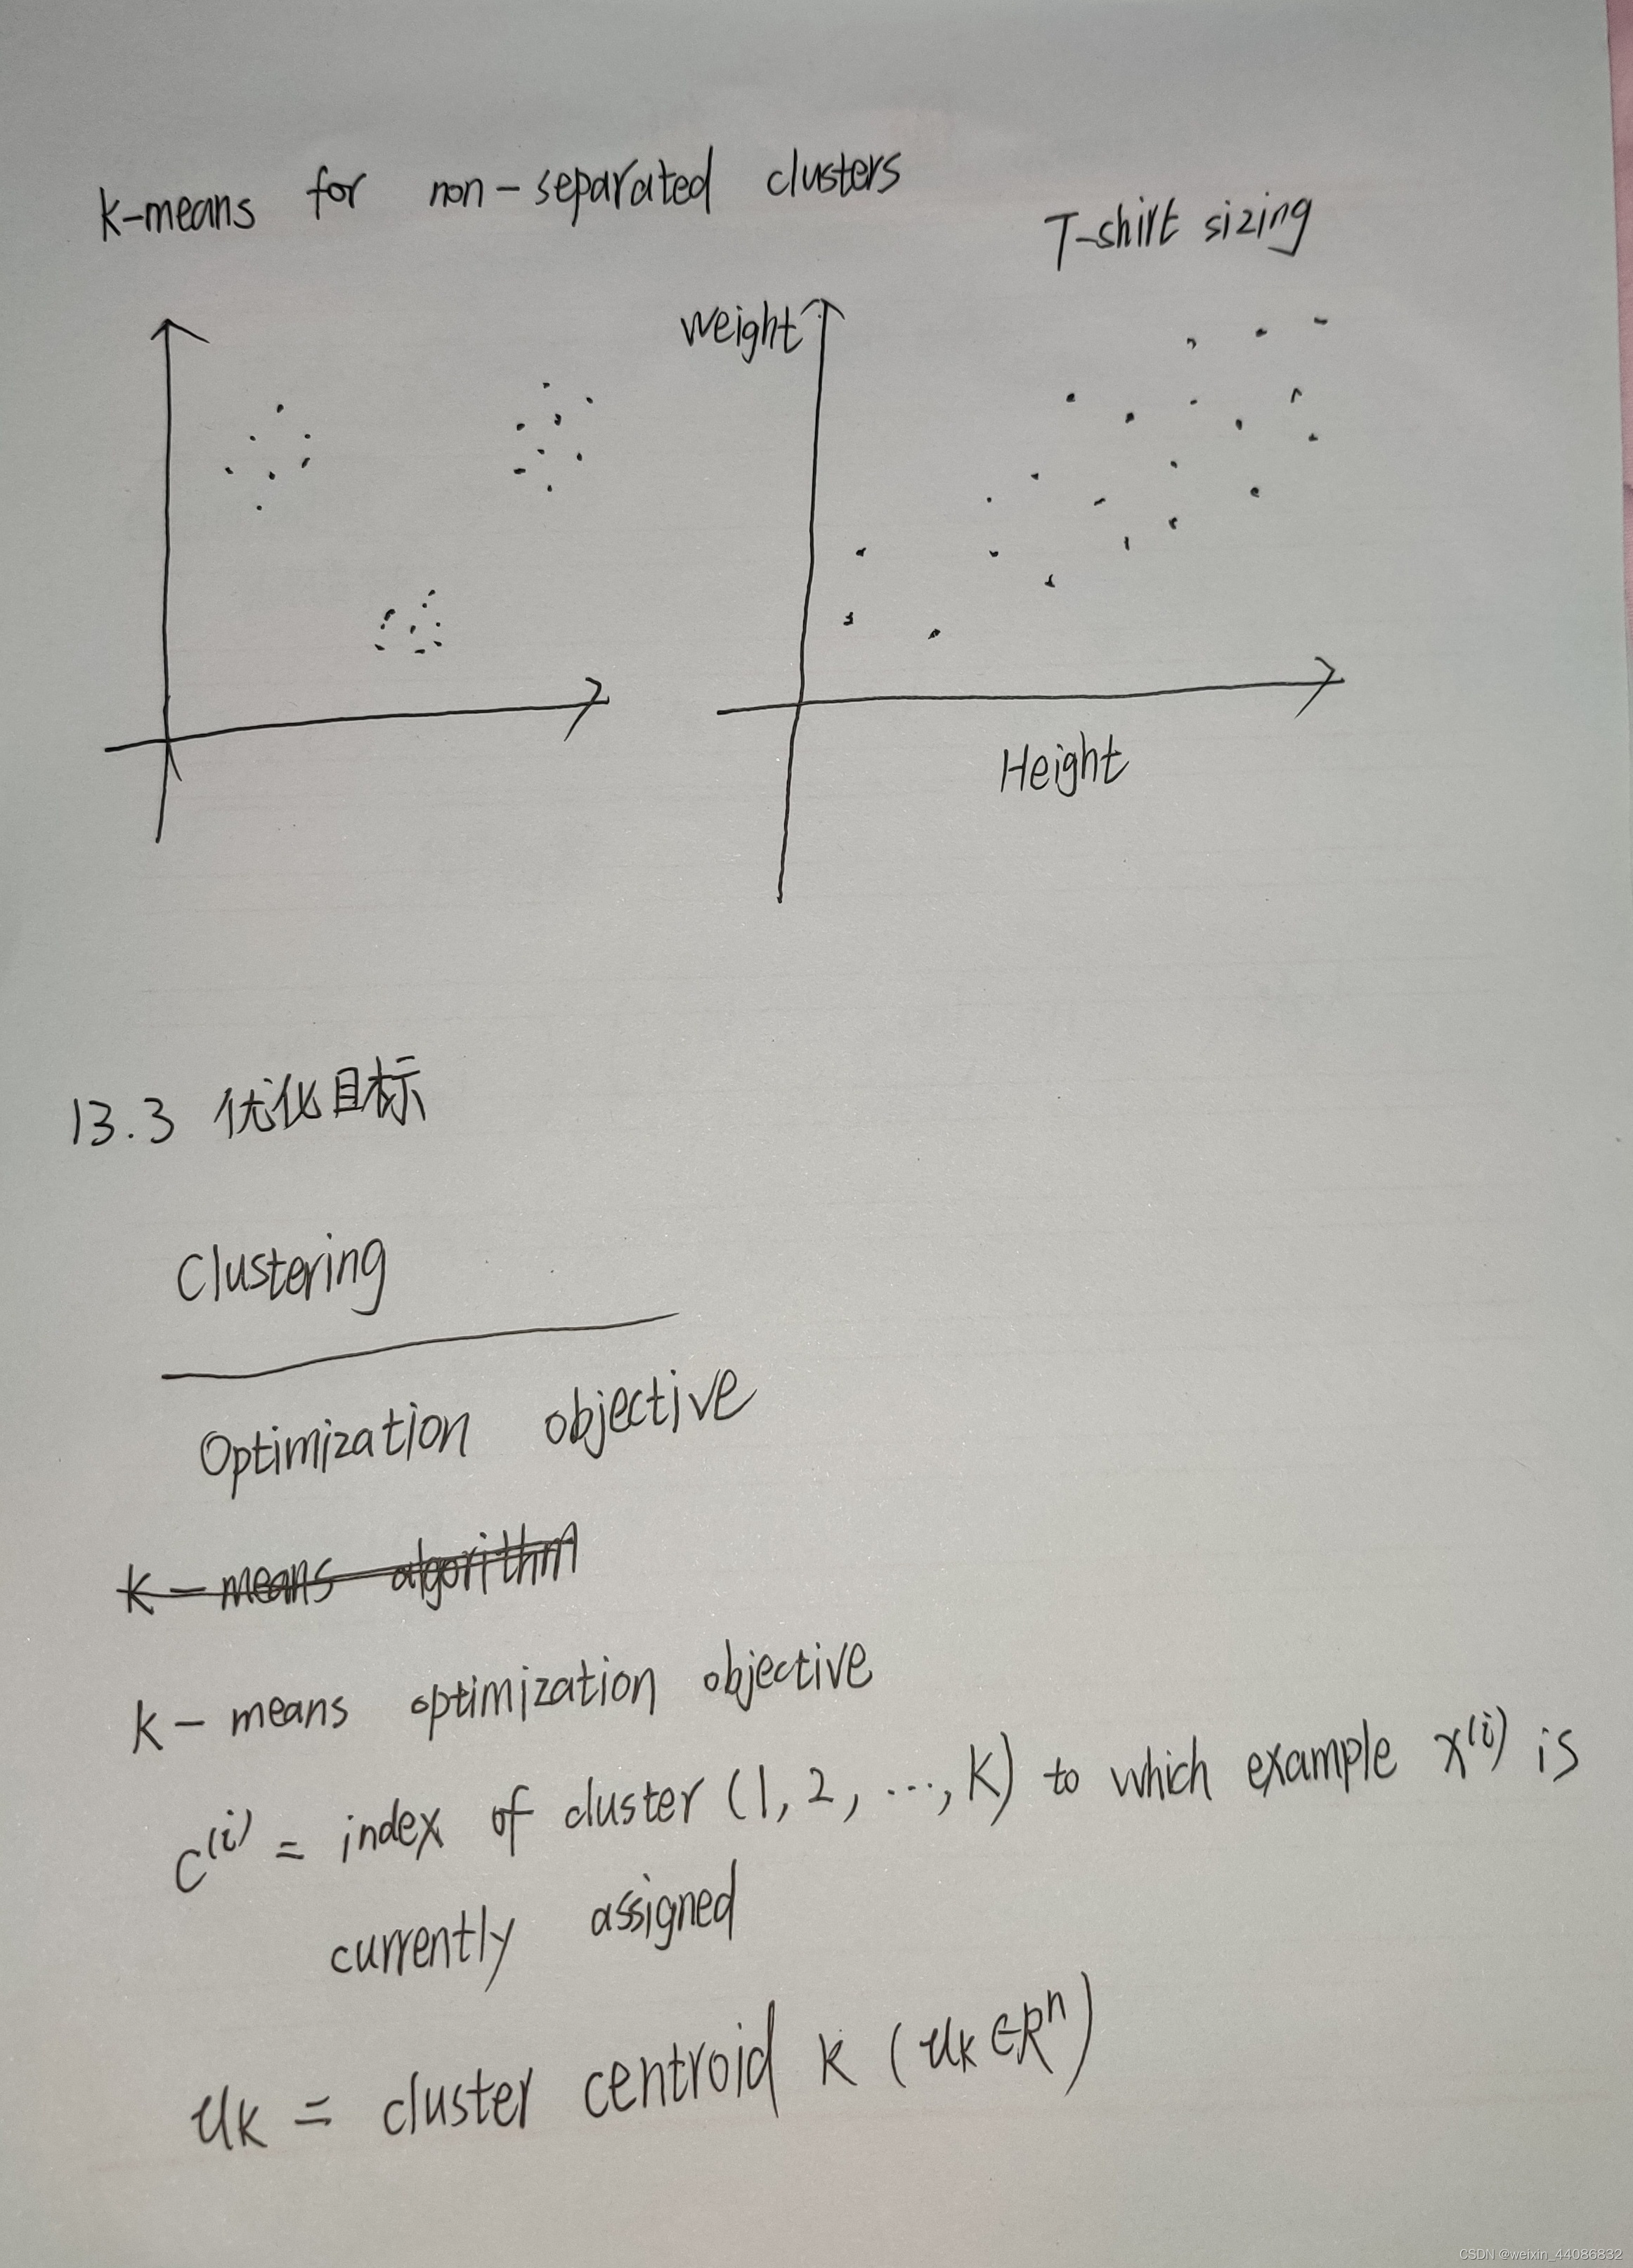 K-means for non-separated clusters
T-shirt sizing
Weight
Height
13.3 优化目标
Clustering
Optimization objective
K-means algorithm
K-means optimization objective
C⁽ⁱ⁾ = index of cluster (1, 2, ..., K) to which example x⁽ⁱ⁾ is
currently assigned
μₖ = cluster centroid k (μₖ∈Rⁿ)
CSDN @weixin_44086832